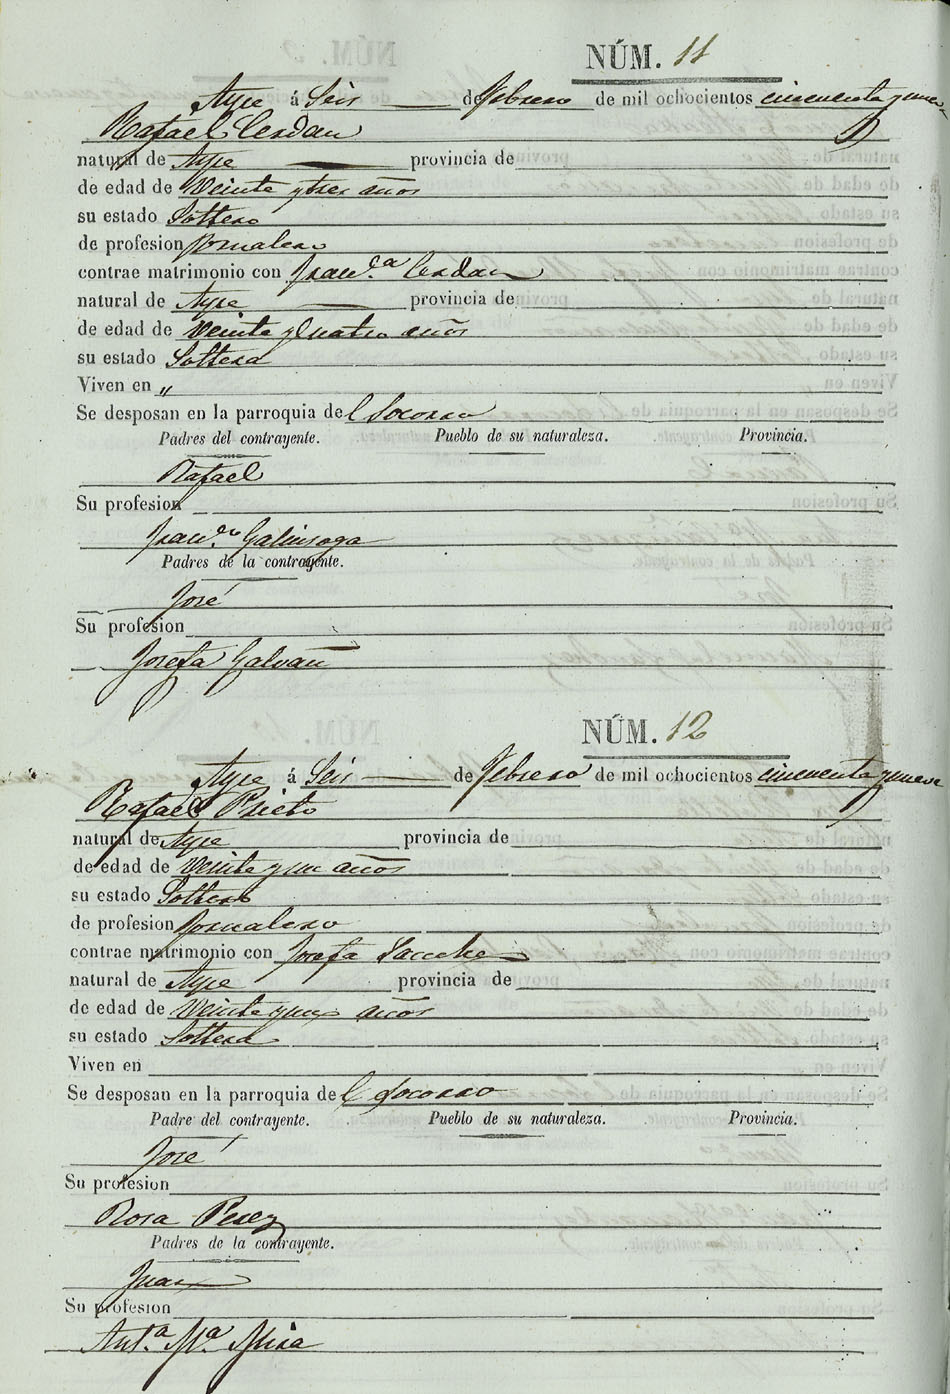 NÚM. 11
Aspe á Seis de febrero de mil ochocientos cincuenta y nueve
Rafael Cerdan
natural de Aspe provincia de
de edad de Veinte y tres años
su estado Soltero
de profesion Jornalero
contrae matrimonio con Franc.ca Cerdan
natural de Aspe provincia de
de edad de Veinte y Cuatro años
su estado Soltera
Viven en „
Se desposan en la parroquia del Socorro
Padres del contrayente. Pueblo de su naturaleza. Provincia.
Rafael
Su profesion
Galinsoga
Padres de la contrayente.
José
Su profesion
Josefa Galvañ
NÚM. 12
Aspe á Seis de febrero de mil ochocientos cincuenta y nueve
Rafael Prieto
natural de Aspe provincia de
de edad de Veinte y un años
su estado Soltero
de profesion Jornalero
contrae matrimonio con Josefa
natural de Aspe provincia de
de edad de Veinte y un años
su estado Soltera
Viven en
Se desposan en la parroquia del Socorro
Padre del contrayente. Pueblo de su naturaleza. Provincia.
José
Su profesion
Rosa Perez
Padres de la contrayente.
Juan
Su profesion
Ant.a M.a Mira